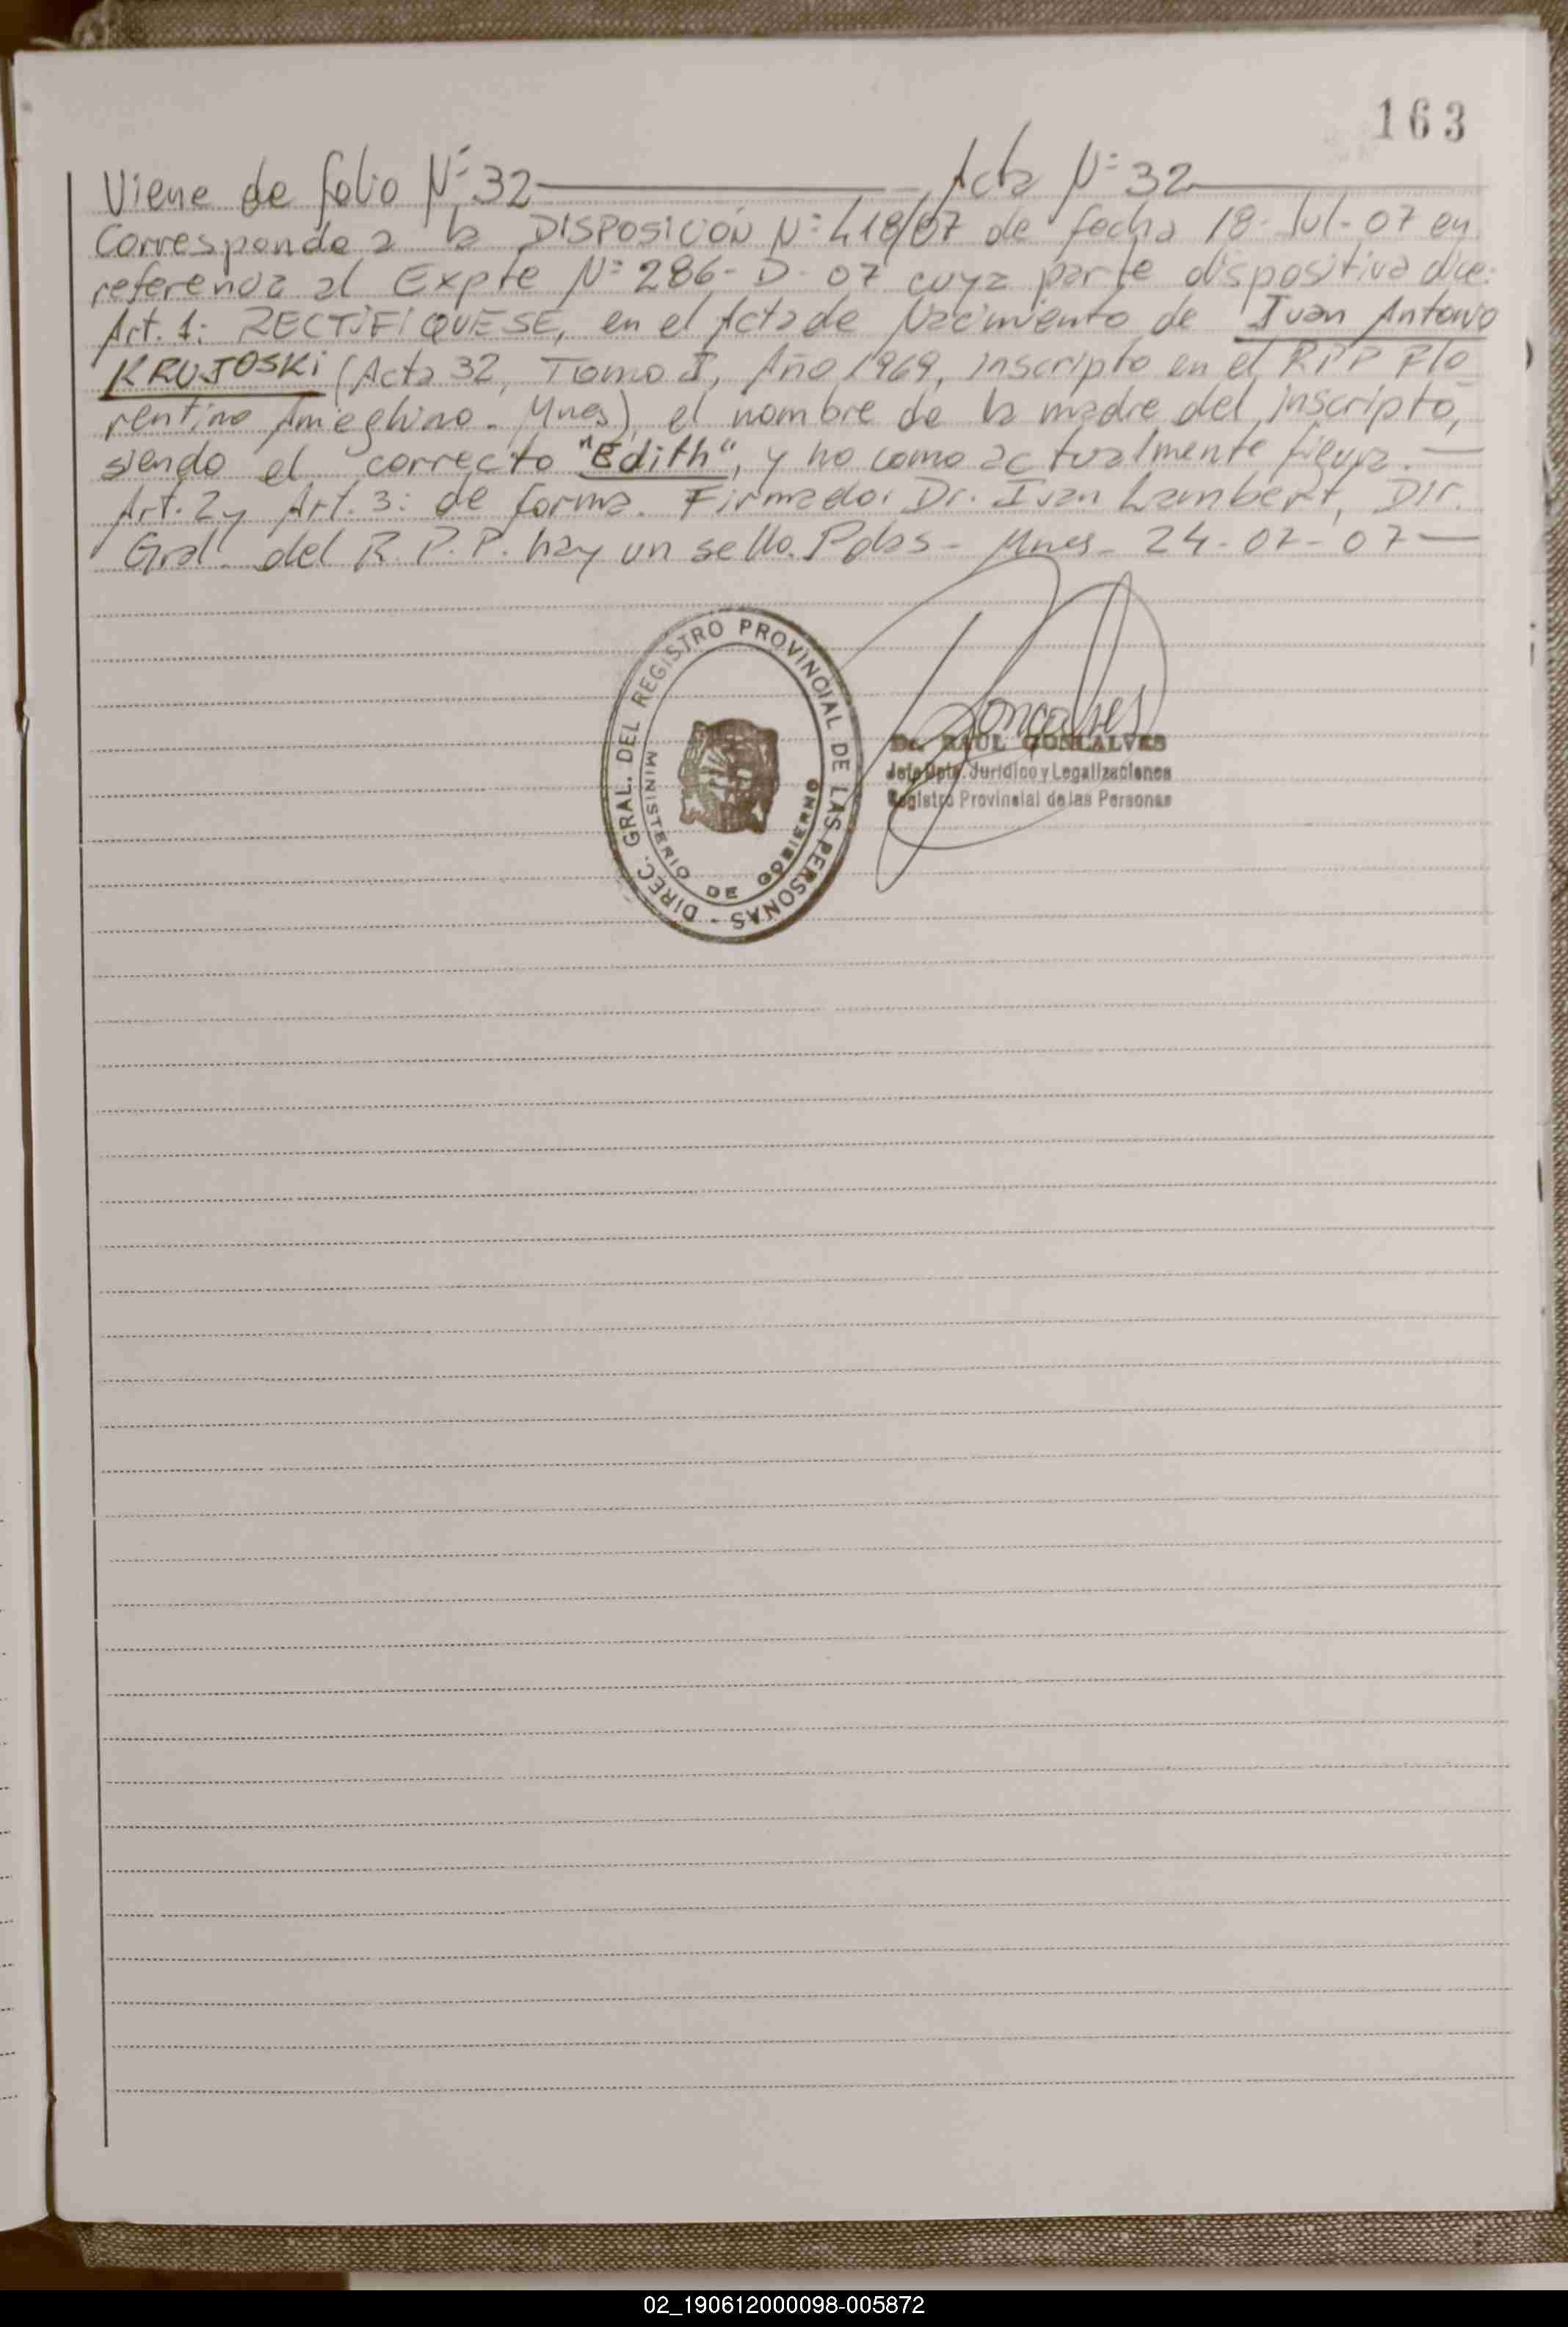 163
Viene de folio Nº 32 Acta Nº 32
Corresponde a la DISPOSICIÓN Nº 418/07 de fecha 18-Jul-07 en
referencia al Expte Nº 286-D-07 cuya parte dispositiva dice:
Art. 1: RECTIFIQUESE, en el Acta de Nacimiento de Juan Antonio
KRUJOSKI (Acta 32, Tomo I, Año 1969, inscripto en el RPP Flo
rentino Ameghino - Mnes), el nombre de la madre del inscripto,
siendo el correcto "Edith", y no como actualmente figura.
Art. 2 y Art. 3: de forma. Firmado: Dr. Ivan Lambert, Dir.
Gral. del R.P.P. hay un sello. Pdas - Mnes - 24-07-07
DIREC. GRAL. DEL REGISTRO PROVINCIAL DE LAS PERSONAS -
MINISTERIO DE GOBIERNO
Goncalves
Dr. RAUL GONCALVES
Jefe Dpto. Jurídico y Legalizaciones
Registro Provincial de las Personas
02_190612000098-005872